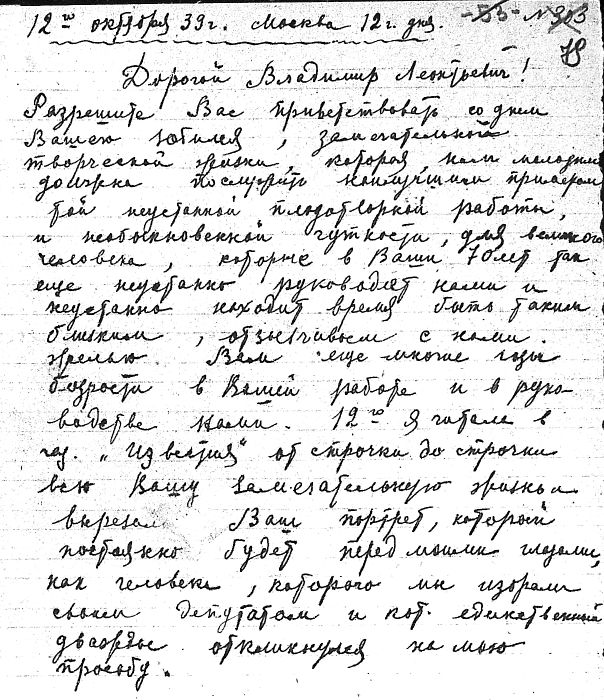 12го октября 39г. Москва 12 г. дня. -53- N 303
78
Дорогой Владимир Леонтьевич!
Разрешите Вас приветствовать со днем
Вашего юбилея, замечательной
творческой жизни, которая, нам молодым
должна послужить наилучшим примером
той неустанной плодотворной работы,
и необыкновенной чуткости, для великого
человека, которые в Ваши 70 лет так
еще неустанно руководит нами и
неустанно находит время быть таким
близким, отзывчивым с нами.
Желаю Вам еще многие годы
бодрости в Вашей работе и в руко-
водстве нами. 12го я читала в
газ. „Известия" от строчки до строчки
всю Вашу замечательную жизнь и
вырезала Ваш портрет, который
постоянно будет перед моими глазами,
как человека, которого мы избрали
своим депутатом и кот. единственный
дважды откликнулся на мою
просьбу.